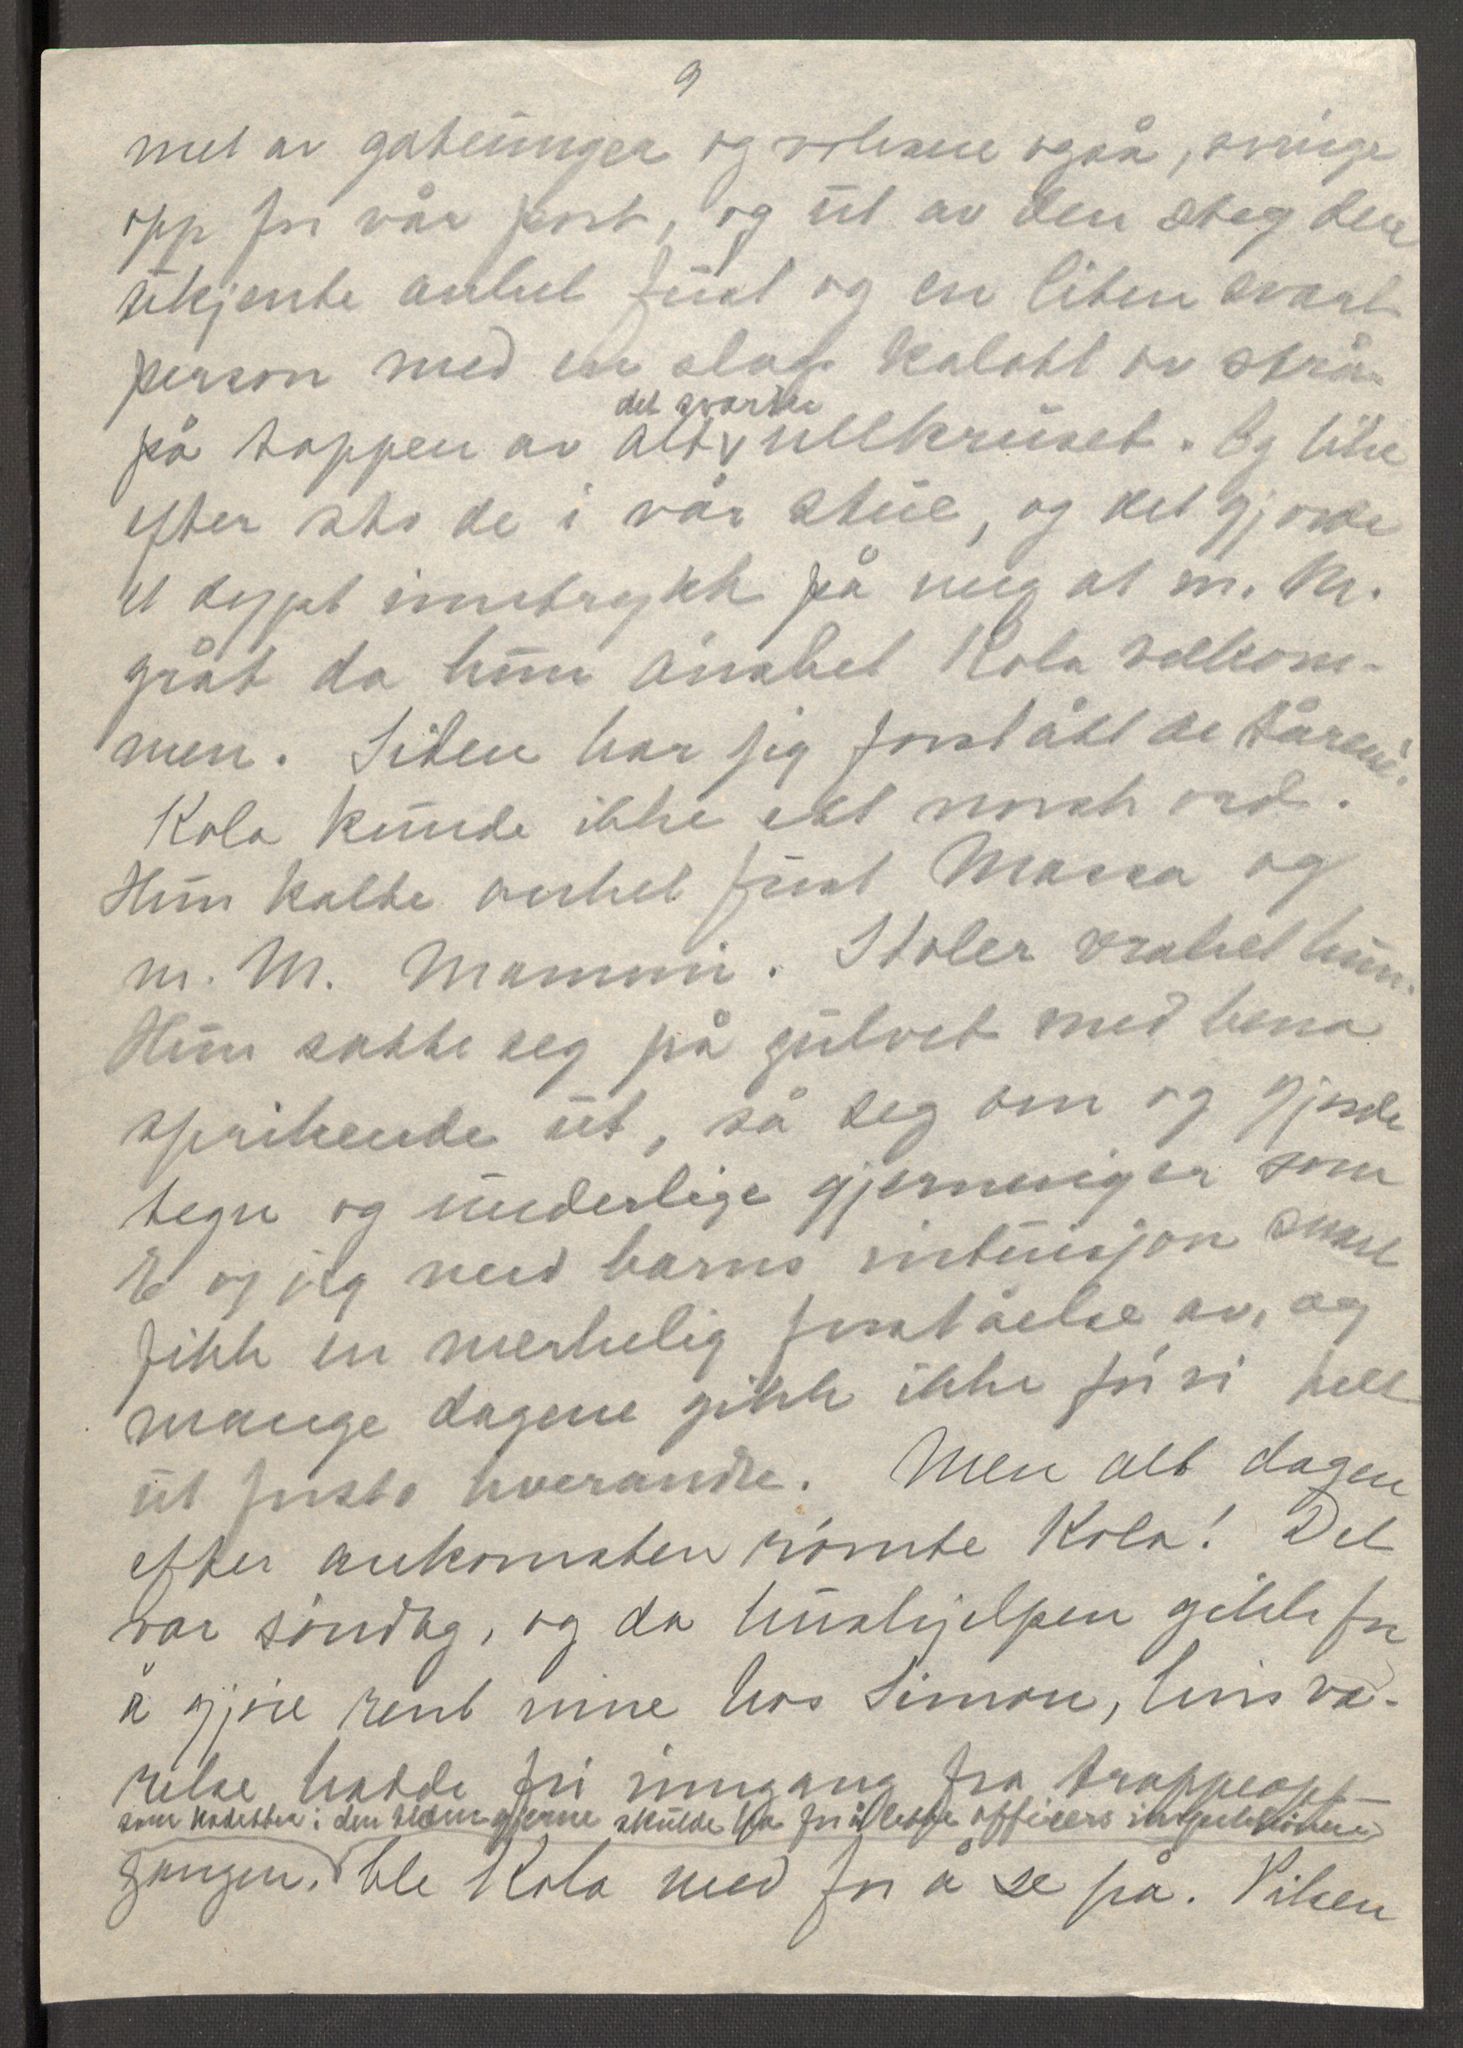 9
met av gateunger og voksne også, svinge
opp for vår port, og ut av den steg den
ukjente onkel Just og en liten svart
person med en slags kalott av strå
på toppen av alt det svarte ullkruset. Og like
efter sto de i vår stue, og det gjorde
et dypt inntrykk på meg at m. M.
gråt da hun ønsket Kola velkom-
men. Siden har jeg forstått de tårene.
Kola kunde ikke ett norsk ord.
Hun kalte onkel Just Massa og
m. M. Mammi. Stoler vraket hun.
Hun satte seg på gulvet med bena
sprikende ut, så seg om og gjorde
tegn og underlige gjerninger som
E og jeg med barns intuisjon snart
fikk en merkelig forståelse av, og
mange dagene gikk ikke før vi helt
ut forsto hverandre. Men alt dagen
efter ankomsten rømte Kola! Det
var søndag, og da hushjelpen gikk for
å gjøre rent inne hos Simon, hvis væ-
relse hadde fri inngang fra trappeopp-
som kadetter i den alderen gjerne skulde ha for å leke officers
gangen, ble Kola med for å se på. Piken